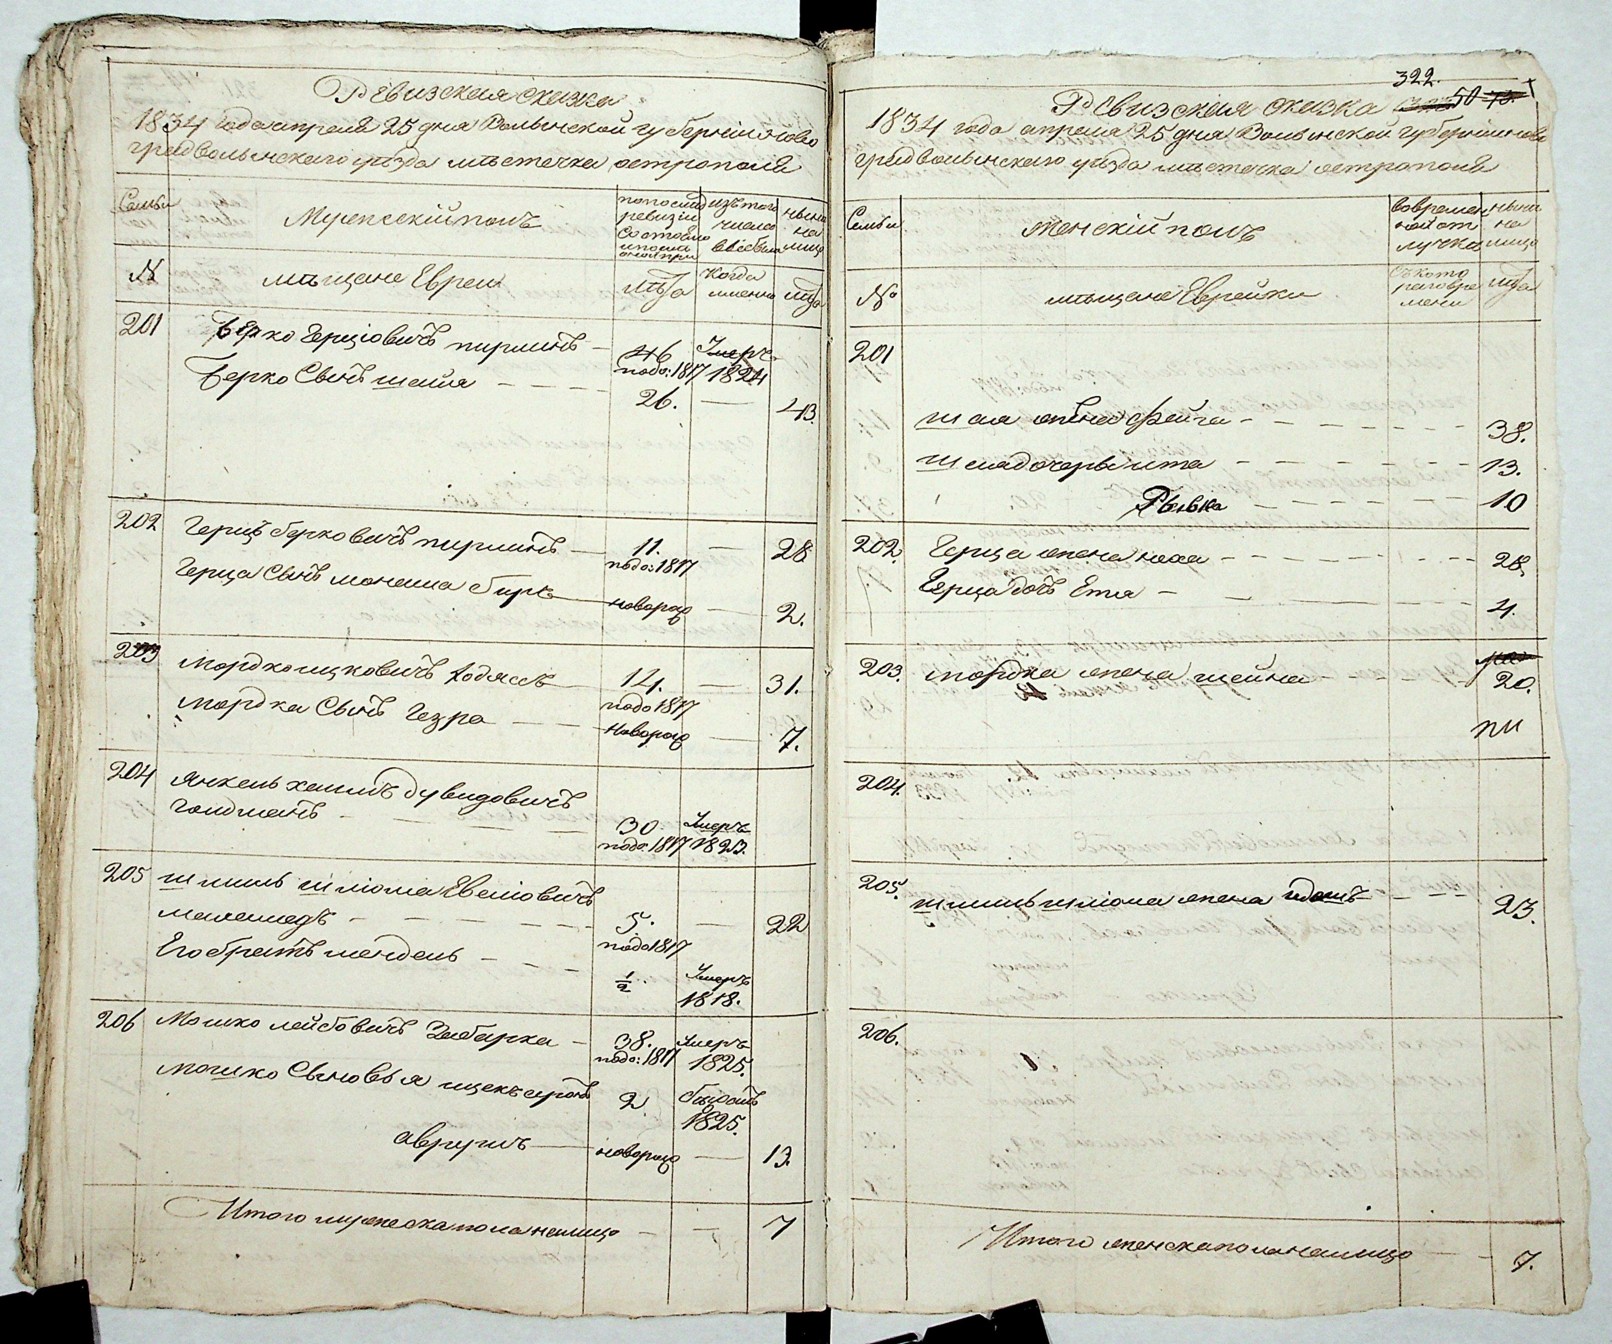 Ревизская сказка
1834 года апреля 25 дня Волынской губернии ново
градволынскаго уезда местечка остропола
Семьи
Мужескій полъ
по последней
ревизіи
состояло
изъ того
числа
выбыло
ныне
на
лицо
№
мещане Евреи
лета
когда
именно
лета
201
Берко Герціовичъ пирминъ
46
Умеръ
подо: 1817 1824
Берко Сынъ шая
26.
43
202
Герцъ берковичъ пирминъ
11.
28
подо: 1817
Герца Сынъ монаша бирк
новорож
2.
203
Мордко ицковичъ
14.
31.
подо 1817
Мордка Сынъ Гезра
новорож
7.
204
Янкель хаимъ дувидовичъ
голдманъ
30.
Умеръ
подо: 1817 1823.
205
шмиль шліома Евеліовичъ
меламедъ
5.
22
подо 1817
Его братъ мендель
½
Умеръ
1818.
206
Мошко лейбовичъ Збарка
38.
Умеръ
подо: 1817 1825.
Мошко Сыновья ицекъ
2
1825.
аврумъ
новорож
13.
Итого мужеска пола налицо
7
322.
50
Ревизская сказка
1834 года апреля 25 дня Волынской губерніи ново
градволынскаго уезда местечка остропола
Семьи
Женскій полъ
во времен
ной от
лучке
ныне
на
лицо
№
мещане Еврейки
съ кото
раго вре
мени
лета
201
шая жена Фейга
38.
шеи дочеры ита
13.
Рывка
10
202.
Герца жена хаа
28.
Герца дочъ Етя
4.
203.
мордка жена шейна
20.
204.
205.
шмиль шліома жена
23.
206.
Итого женска пола налицо
7.